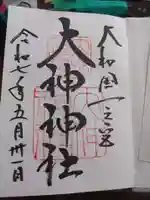 大和國一之宮
大神神社
令和七年五月卅一日